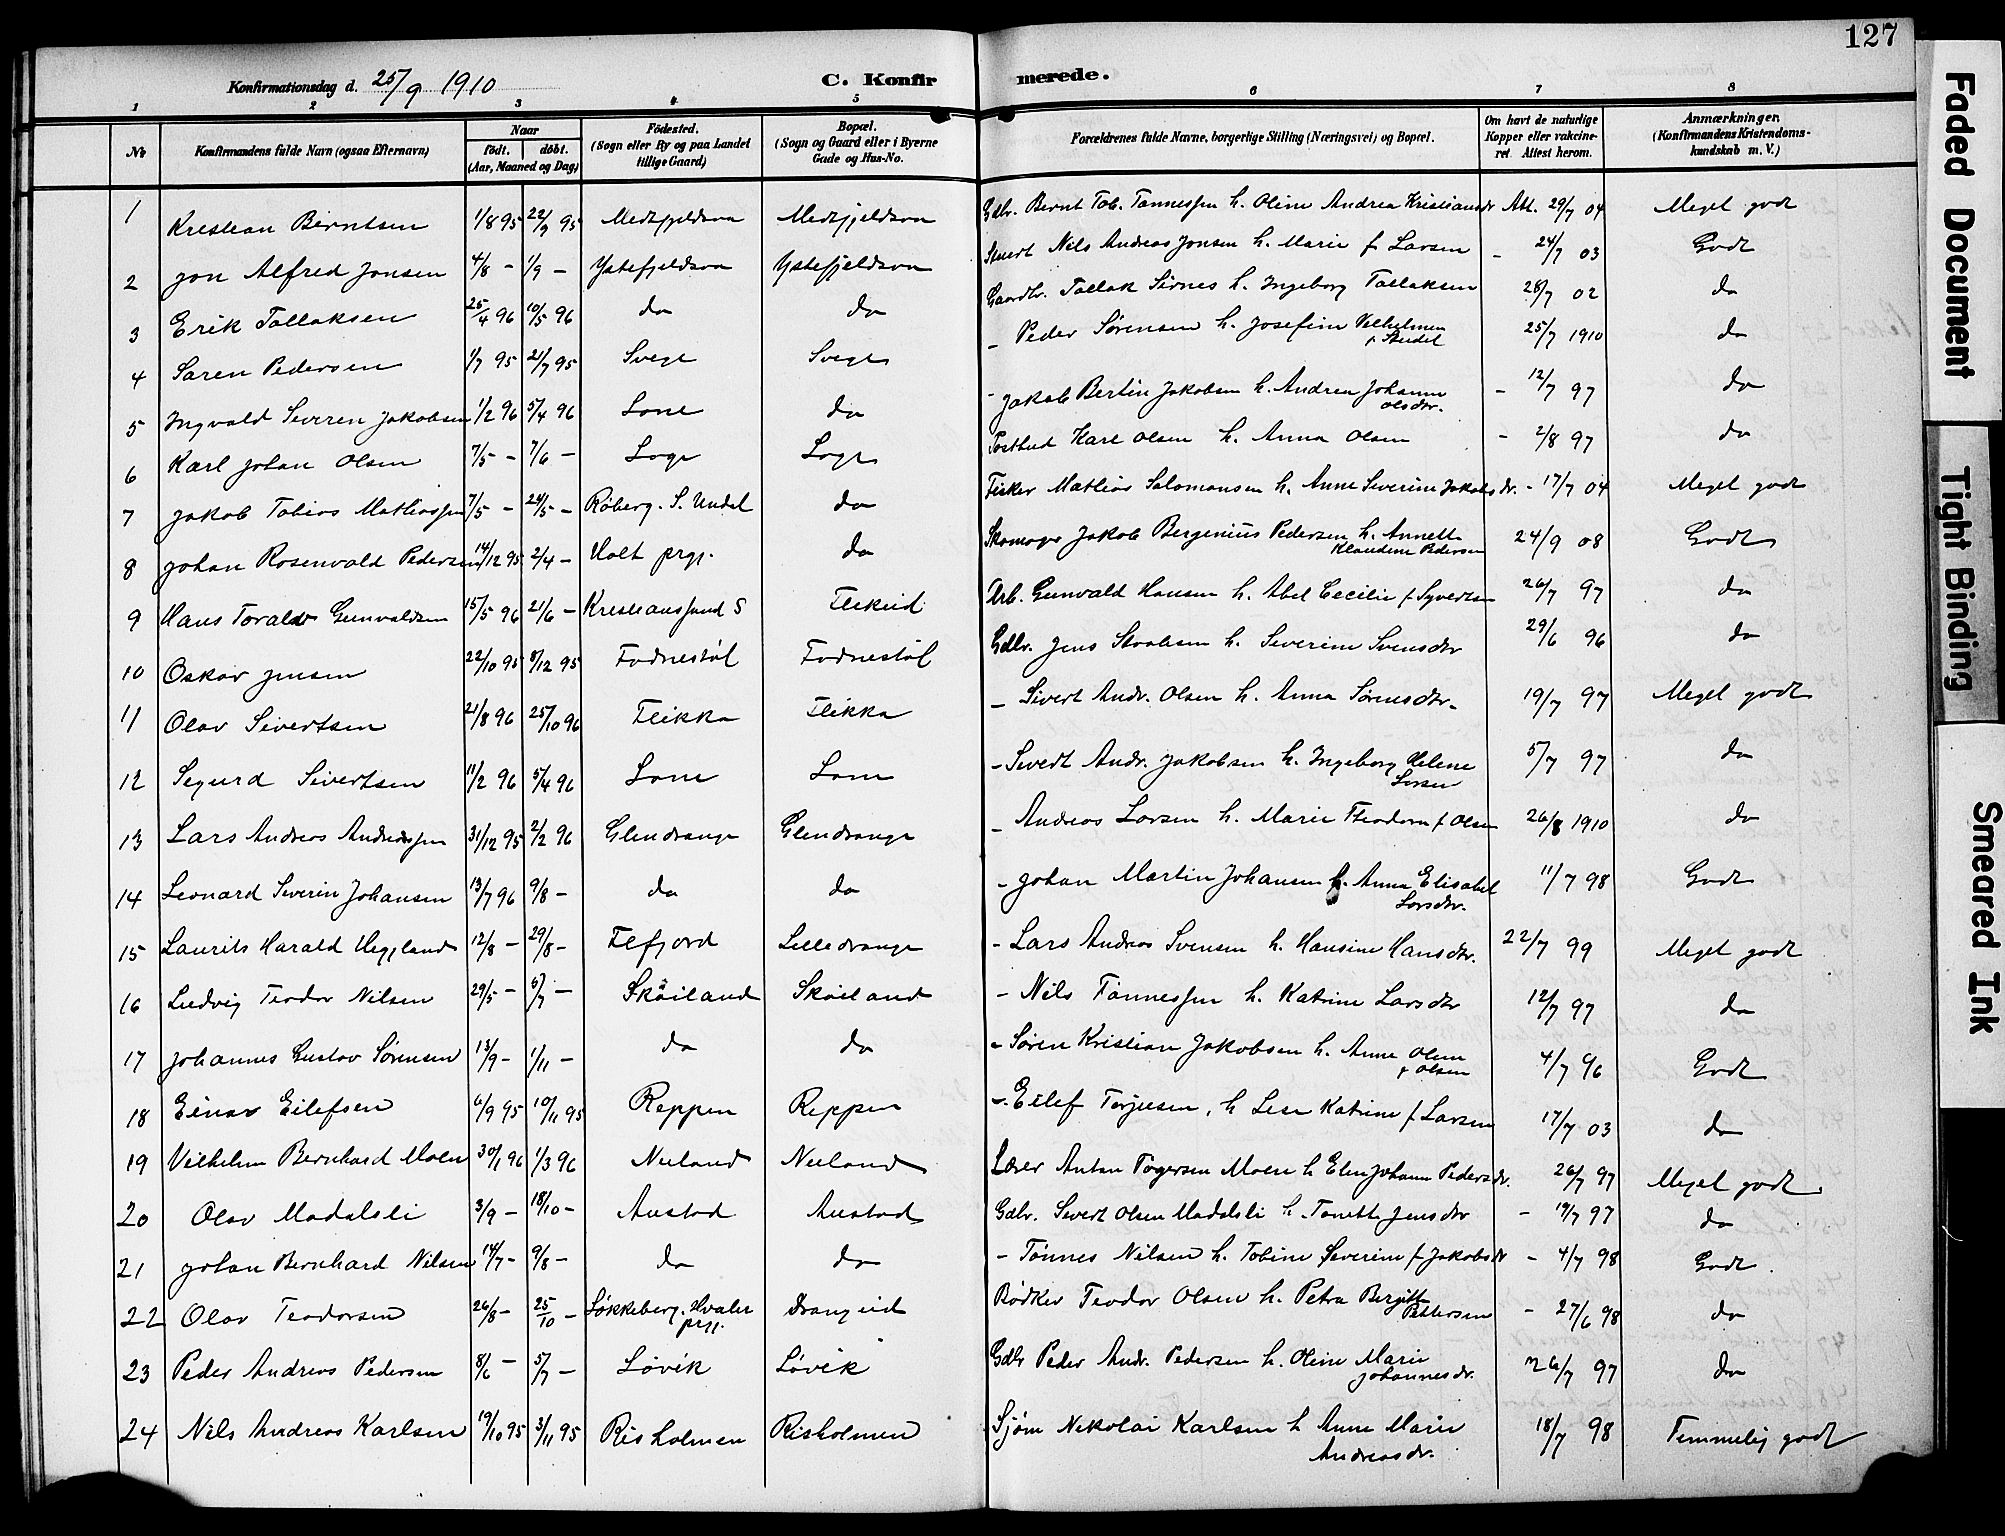 127
Konfirmationsdag d. 25/9 1910
C. Konfirmerede.
1 2 3 4 5 6 7 8
No
Konfirmandens fulde Navn (ogsaa Efternavn)
Naar
født. døbt.
(Aar, Maaned og Dag)
Fødested.
(Sogn eller By og paa Landet
tillige Gaard)
Bopæl.
(Sogn og Gaard eller i Byerne
Gade og Hus-No.
Forældrenes fulde Navne, borgerlige Stilling (Næringsvei) og Bopæl.
Om havt de naturlige
Kopper eller vakcine-
ret. Attest herom.
Anmærkninger.
(Konfirmandens Kristendoms-
kundskab m. V.)
1 Kristian Berntsen 1/8 95 22/9 95 Midtfjeldsaa Midtfjeldsaa Gdbr. Bernt Tob. Tønnessen h. Oline Andrea Kristiansdr Att. 29/7 04 Meget godt
2 Jon Alfred Jonsen 4/8 - 1/9 - Ystefjeldsaa Ystefjeldsaa Nils Andreas Jonsen h. Marie f. Larsen - 24/7 03 Godt
3 Erik Tallaksen 25/4 96 10/5 96 do do Gaardbr. Tallak Sirnes h. Ingeborg Tallaksen 28/7 02 do
4 Søren Pedersen 1/7 95 21/7 95 Svege Svege - Peder Sørensen h. Josefine Vilhelmine 25/7 1910 do
5 Ingvald Severin Jakobsen 1/2 96 5/4 96 Lone do - Jakob Bertin Jakobsen h. Andrea Johanne
Olsdtr. - 12/7 97 do
6 Karl Johan Olsen 7/5 - 7/6 - Loge Loge Postbud Karl Olsen h. Anna Olsen - 2/8 97 do
7 Jakob Tobias Mathiassen 7/5 - 24/5 - Røberg. S. Undal do Fisker Mathias Salomonsen h. Anne Severine Jakobsdr. - 17/7 04 Meget godt
8 Johan Rosenvald Pedersen 14/12 95 2/4 - Holt prgj. do Skomager Jakob Bergenius Pedersen h. Annette
Klaudine Pedersen 24/9 08 Godt
9 Hans Torald Gunvaldsen 15/5 96 21/6 - Kristianssund S Flikeid Arb. Gunvald Hansen h. Abel Cecilie f. Syvertsen 26/7 97 do
10 Oskar Jensen 22/10 95 8/12 95 Fodnestøl Fodnestøl Gdbr. Jens h. Severine Svensdtr 29/6 96 do
11 Olav Sivertsen 21/8 96 25/10 96 Flikka Flikka - Sivert Andr. Olsen h. Anna Sørensdtr. 19/7 97 Meget godt
12 Sigurd Sivertsen 11/2 96 5/4 96 Lone Lone - Sivert Andr. Jakobsen h. Ingeborg Helene
Larsen 5/7 97 do
13 Lars Andreas Andreassen 31/12 95 2/2 96 Glendrange Glendrange - Andreas Larsen h. Marie Theodora f. Olsen 26/8 1910 do
14 Leonard Severin Johansen 13/7 96 9/8 - do do - Johan Martin Johansen h. Anna Elisabet
Larsdtr. 11/7 98 Godt
15 Laurits Harald Heggland 12/8 - 29/8 - Flefjord Lilledrange - Lars Andreas Svensen h. Hansine Hansdtr. 22/7 99 Meget godt
16 Ludvig Teodor Nilsen 29/5 - 5/7 - Skøiland Skøiland - Nils Tønnessen h. Katrine Larsdtr 12/7 97 do
17 Johannes Gustav Sørensen 13/9 - 1/11 - do do - Søren Kristian Jakobsen h. Anne Oline
f. Olsen 4/7 96 Godt
18 Einar Eilefsen 6/9 95 10/11 95 Reppen Reppen - Eilef Torjusen, h Lise Katrine f. Larsen 17/7 03 do
19 Vilhelm Bernhard Moen 30/1 96 1/3 96 Neeland Neeland Lærer Anton Togersen Moen h Elen Johanne Pedersdr. 26/7 97 Meget godt
20 Olav Madalsli 3/9 - 18/10 - Austad Austad Gdbr. Sivert Olsen Madalsli h. Tonette Jensdtr - 19/7 97 do
21 Johan Bernhard Nilsen 14/7 - 9/8 - do do - Tønnes Nilsen h. Tobine Severine f. Jakobsdr - 4/7 98 Godt.
22 Olav Teodorsen 26/8 - 25/10 - Løkkeberg. Hvaler
prgj. Drangeid Bødker Teodor Olsen h. Petra Bergitte
Pettersen - 27/6 98 do
23 Peder Andreas Pedersen 8/6 - 5/7 - Løvik Løvik Gdbr Peder Andr. Pedersen h. Oline Marie
Johannesdr. 26/7 97 do
24 Nils Andreas Karlsen 19/10 95 3/11 95 Risholmen Risholmen Sjøm Nikolai Karlsen h Anne Marie
Andreasdr. 18/7 98 Temmelig godt
Faded Document
Tight Binding
Smeared Ink